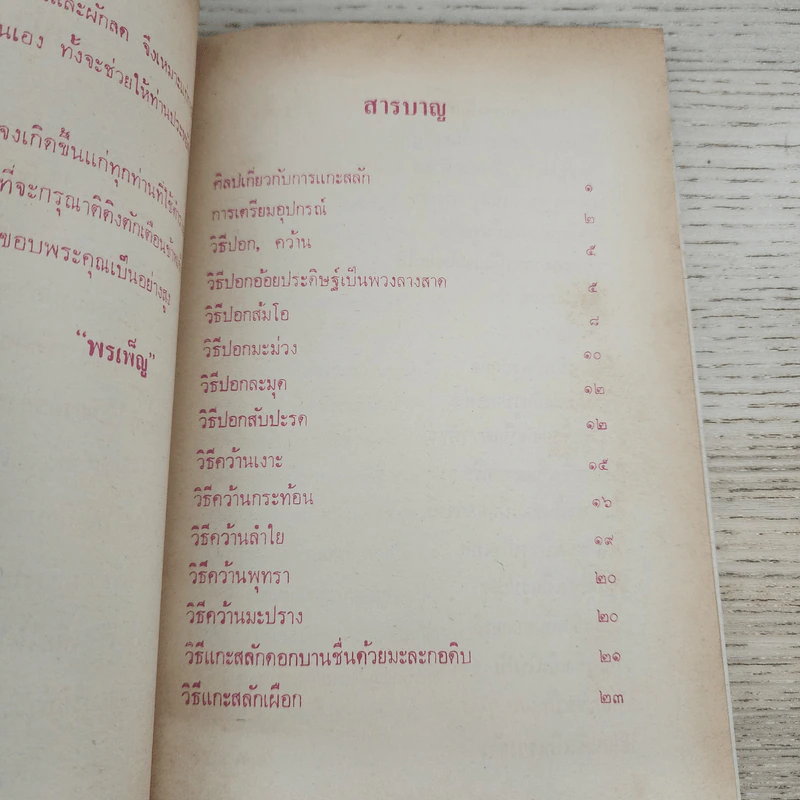 และผักสด จึงเหมาะ
นเอง ทั้งจะช่วยให้ท่าน
จงเกิดขึ้นแก่ทุกท่านที่ใช้
ที่จะกรุณาติติงตักเตือน
ขอบพระคุณเป็นอย่างสูง
“พรเพ็ญ”
สารบาญ
ศิลปเกี่ยวกับการแกะสลัก ๑
การเตรียมอุปกรณ์ ๒
วิธีปอก, คว้าน ๕
วิธีปอกอ้อยประดิษฐ์เป็นพวงลางสาด ๕
วิธีปอกส้มโอ ๘
วิธีปอกมะม่วง ๑๐
วิธีปอกละมุด ๑๒
วิธีปอกสับปะรด ๑๒
วิธีคว้านเงาะ ๑๕
วิธีคว้านกระท้อน ๑๖
วิธีคว้านลำไย ๑๙
วิธีคว้านพุทรา ๒๐
วิธีคว้านมะปราง ๒๐
วิธีแกะสลักดอกบานชื่นด้วยมะละกอดิบ ๒๑
วิธีแกะสลักเผือก ๒๓